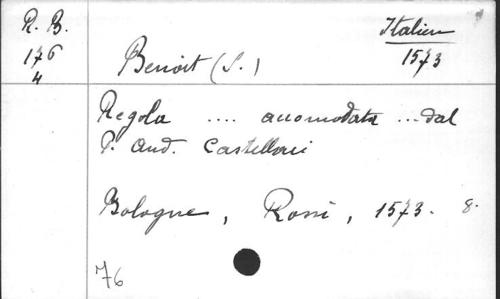 R. B.
Italien
176
4
1573
Benoit (S.)
Regola .... accomodata ... dal
P. And. Castellani
Bologne, Rossi, 1573. 8.
76